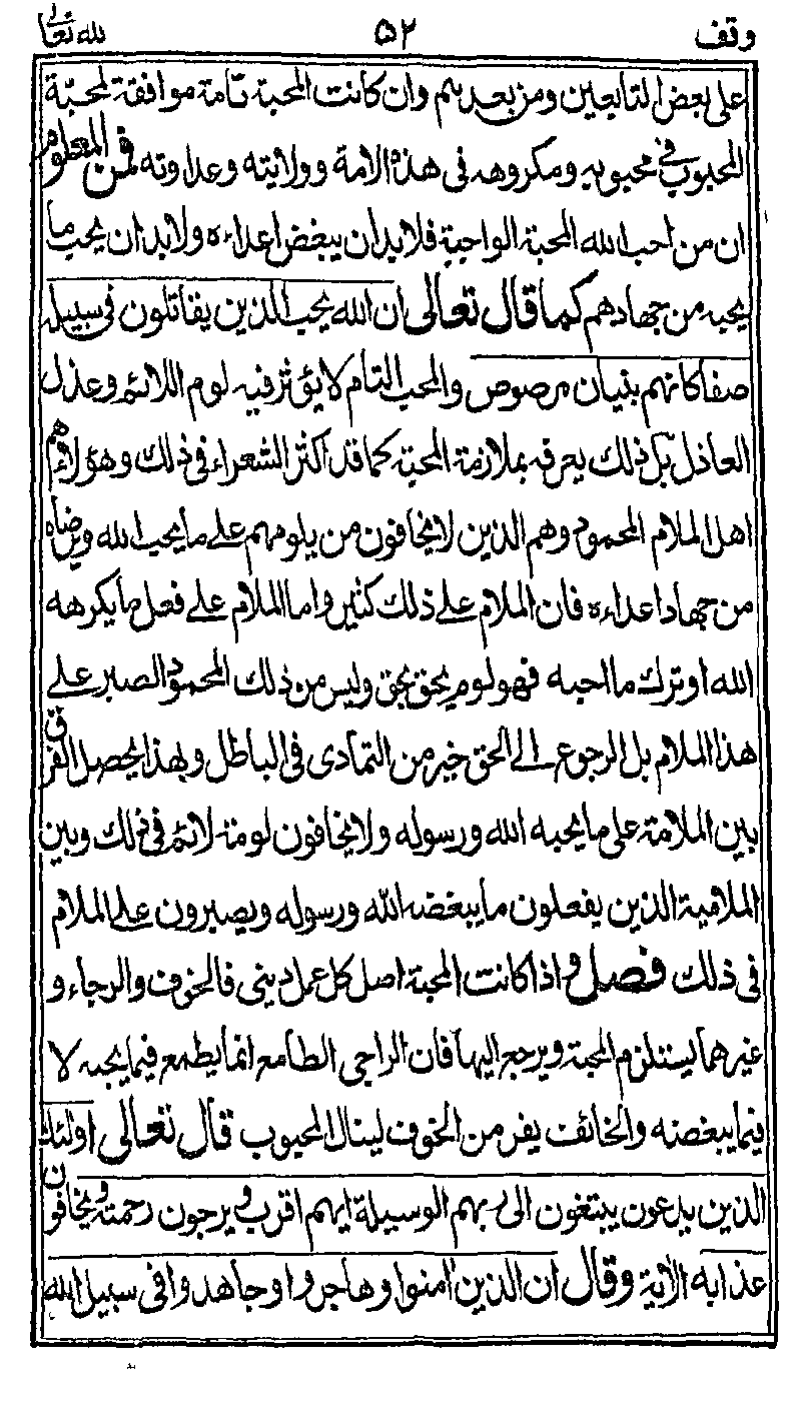 وقف ٥٢ لله تعالى
على بعض التابعين ومن بعدهم وان كانت المحبة تامة موافقة لمحبة
المحبوب في محبوبه ومكروهه فى هذه الامة وولايته وعداوته فمن المعلوم
ان من احب الله المحبة الواجبة فلا بد ان يبغض اعداءه ولا بد ان يحب ما
يحبه من جهادهم كما قال تعالى ان الله يحب الذين يقاتلون فى سبيله
صفا كانهم بنيان مرصوص والمحب التام لا يؤثر فيه لوم اللائم وعذل
العاذل بل ذلك يعرفه بملازمة المحبة كما قد اكثر الشعراء فى ذلك وهؤلاء هم
اهل الملام المحمود وهم الذين لا يخافون من يلومهم على ما يحب الله ويرضاه
من جهاد اعداءه فان الملام على ذلك كثير واما الملام على فعل ما يكرهه
الله او ترك ما احبه فهو لوم بحق بحق وليس من ذلك المحمود الصبر على
هذا الملام بل الرجوع الى الحق خير من التمادى فى الباطل وبهذا يحصل الفرق
بين الملامة على ما يحبه الله ورسوله ولا يخافون لومة لائم فى ذلك وبين
الملامية الذين يفعلون ما يبغضه الله ورسوله ويصبرون على الملام
فى ذلك فصل واذا كانت المحبة اصل كل عمل دينى فالخوف والرجاء و
غيرهما يستلزم المحبة ويرجع اليها فان الراجى الطامع انما يطمع فيما يحبه لا
فيما يبغضه والخائف يفر من الخوف لينال المحبوب قال تعالى اولئك
الذين يدعون يبتغون الى ربهم الوسيلة ايهم اقرب ويرجون رحمته ويخافون
عذابه الآية وقال ان الذين امنوا وهاجروا وجاهدوا فى سبيل الله